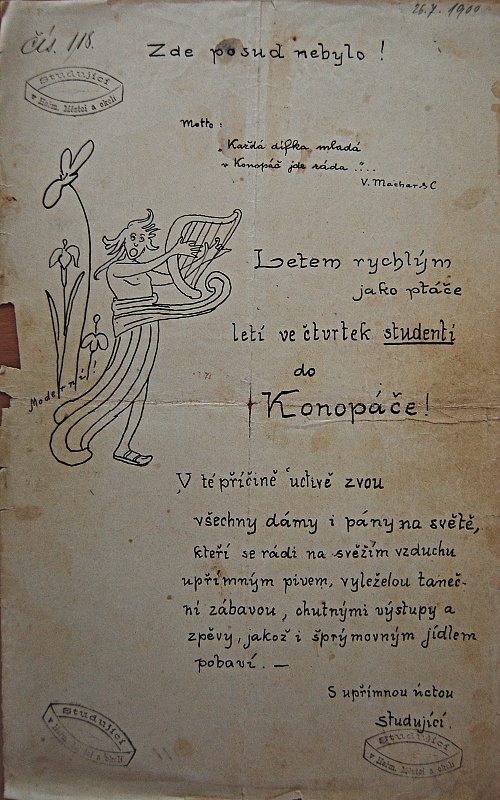 26.7. 1900
čís. 118.
Zde posud nebylo !
Studující
v Heřm. Městci a okolí
Motto :
„Každá dífka mladá
v Konopáč jde ráda“....
V. Machar & C
Letem rychlým
jako ptáče
letí ve čtvrtek studenti
do
Konopáče!
Moderní!
V té příčině uctivě zvou
všechny dámy i pány na světě,
kteří se rádi na svěžím vzduchu
upřímným pivem, vyleželou taneč-
ní zábavou, chutnými výstupy a
zpěvy, jakož i šprýmovným jídlem
pobaví. —
S upřímnou úctou
studující.
Studující
v Heřm. Městci a okolí
Studující
v Heřm. Městci a okolí